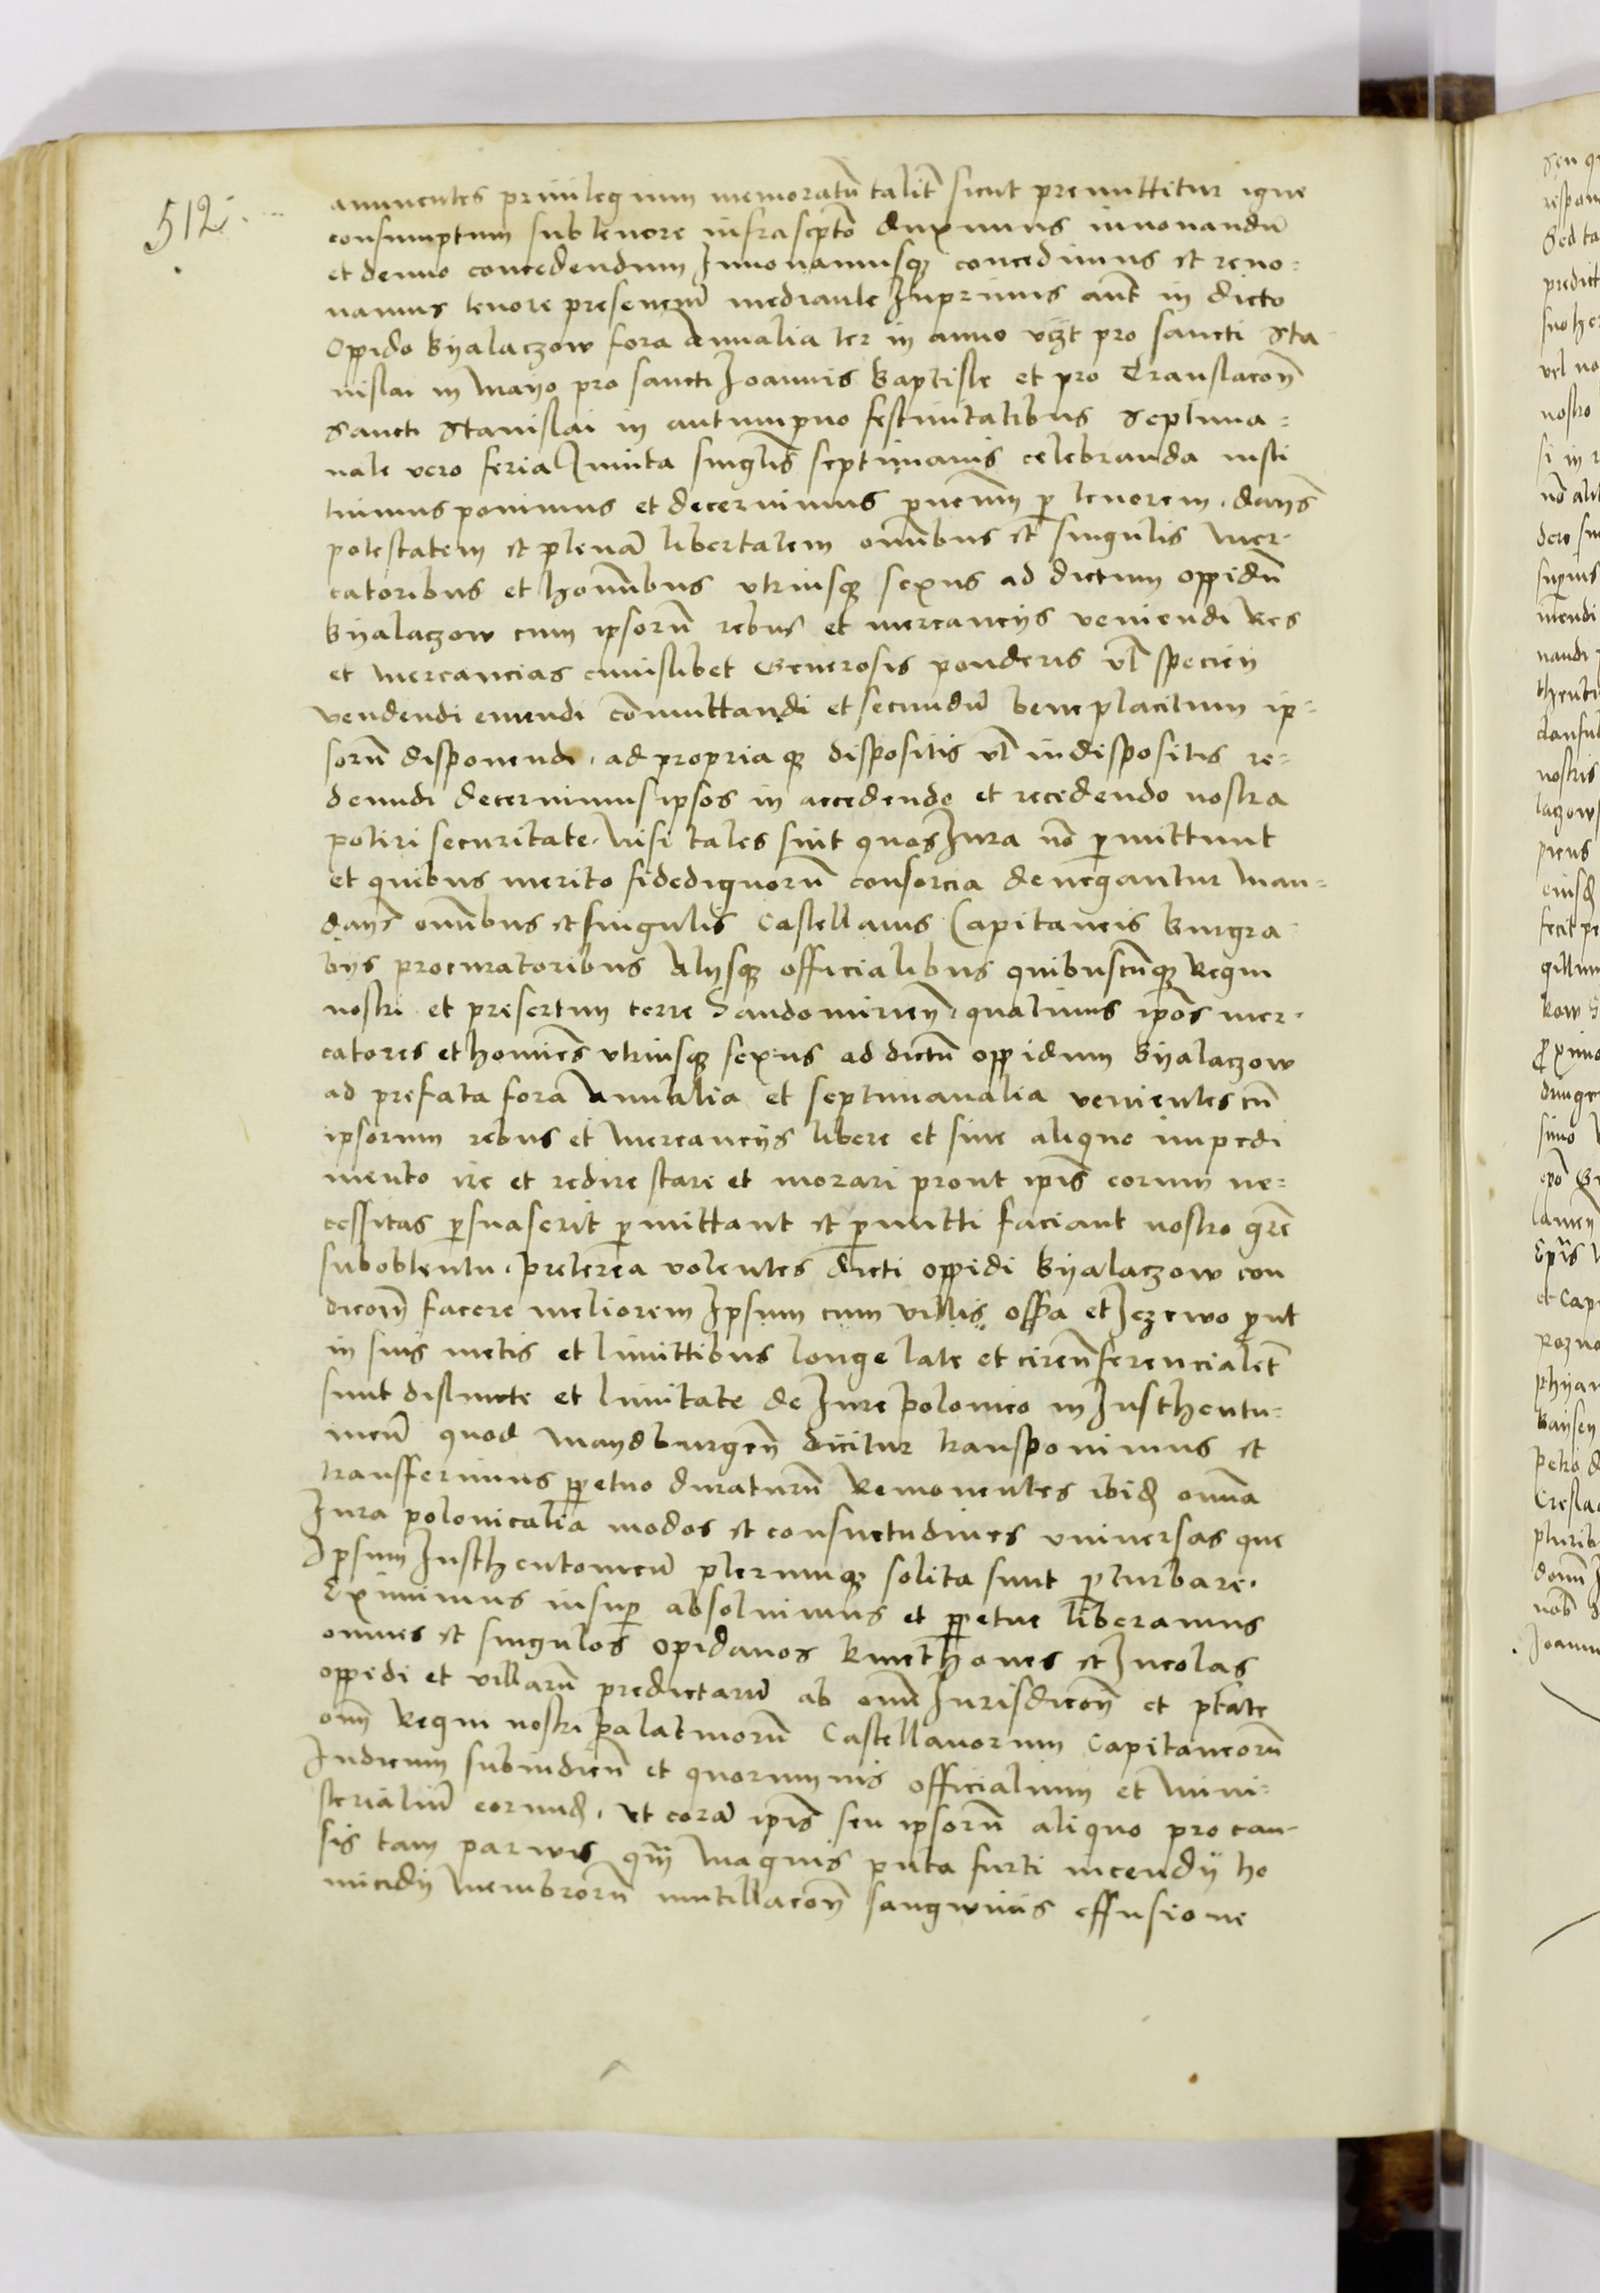 512
annuentes priuilegium memoratũ talit̃ sicut premittitur igne
consumptum sub tenore infrascp̃to duximus innouandũ
et denuo concedendum Innouamusq3 concedimus et reno=
uamus tenore presenciũ mediante Inprimis aut̃ in dicto
Oppido Byalaczow fora Annualia ter in anno vĩzt pro sancti Sta
nislai in Mayo pro sancti Joannis Baptiste et pro Translacoñ
Sancti Stanislai in autumpno festiuitatibus Septima=
nale vero feria Quinta singlis̃ septimanis celebranda insti
tuimus ponimus et decernimus p̃nciũm p̱ tenorem. dañs
potestatem et plenã libertatem om̃ibus et singulis Mer=
catoribus et hom̃ibus vtriusq3 sexus ad dictum oppidũ
Byalaczow cum ipsorũ rebus et mercancijs veniendi Res
et Mercancias cuiuslibet Generosis ponderis vl̃ speciei
vendendi emendi com̃uttandi et secundũ beneplacitum ip=
sorũ disponendi. ad propria q3 dispositis vl̃ indispositis re=
deundi decernimus ipsos in accedendo et recedendo nostra
potiri securitate. Nisi tales sint quos Jura nõ p̱mittunt
et quibus merito fidedignorũ consorcia denegantur Man=
dañs om̃ibus et singulis Castellanis Capitaneis Burgra
bijs procuratoribus Alijsq3 officialibus quibuscũq3 Regni
nostri et presertim terre Sandomirieñ. quatinus ip̃os mer=
catores et homĩes vtriusq3 sexus ad dictũ oppidum Byalaczow
ad prefata fora Annualia et septimanalia venientes cũ
ipsorum rebus et Mercancijs libere et sine aliquo impedi
mento ire et redire stare et morari prout ip̃is eorum ne=
cessitas p̱suaserit p̱mittant et p̱mitti faciant nostro gr̃e
sub obtentu. Preterea volentes dicti oppidi Byalaczow con
dicoñ facere meliorem Ipsum cum villis Ossa et Jezewo p̃ut
in suis metis et limittibus longe late et circũferencialit̃
sunt distincte et limitate de Jure Polonico in Justhentu=
nicũ quod Maydburgeñ dicitur transponimus et
transferimus pp̱etuo duraturũ Remouentes ibid̃ om̃ia
Jura polonicalia modos et consuetudines vniuersas que
Ipsum Justhentonicũ plerumq3 solita sunt p̱turbare.
Eximimus insup̱ absoluimus et pp̱etue liberamus
omnes et singulos opidanos Kmethones et Incolas
oppidi et villarũ predictarũ ab om̃i Jurisdicoñ et ptãte
om̃ Regni nostri Palatinorũ Castellanorum Capitaneorũ
Judicum subiudicũ et quorumuis officialium et Mini=
sterialiũ eorund̃. vt corã ip̃is seu ipsorũ aliquo pro cau=
sis tam paruis q̃m Magnis puta furti incendij ho
micidij Membrorũ mutillacoñ sangwinis effusione